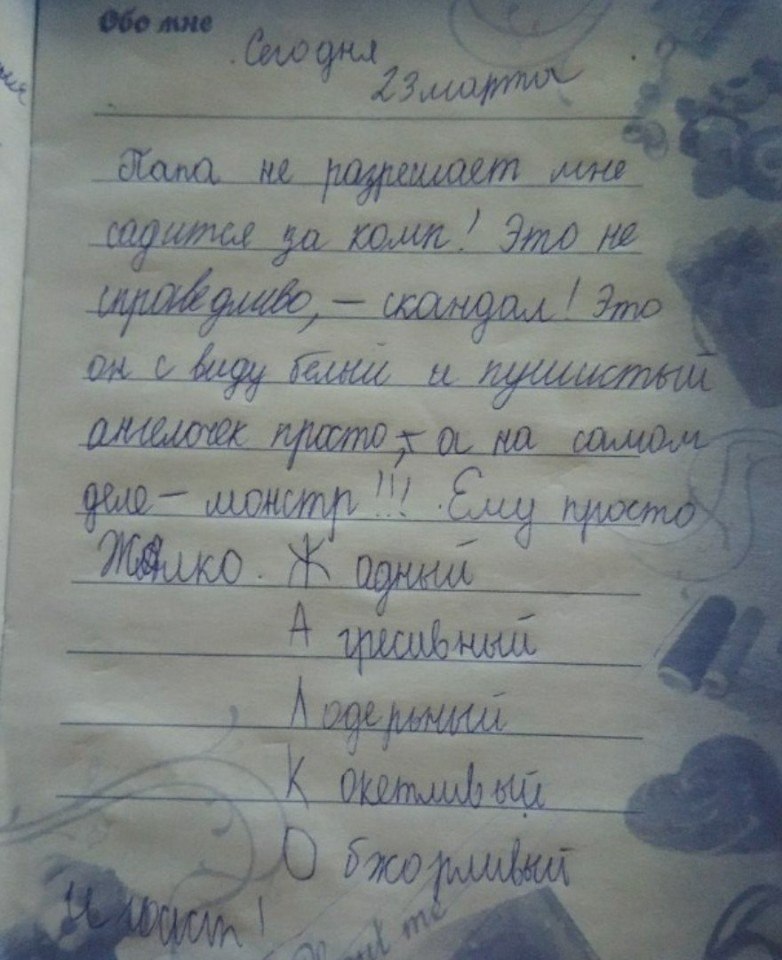 Обо мне
Сегодня
23 марта
Папа не разрешает мне
садится за комп! Это не
справедливо, – скандал! Это
он с виду белый и пушистый
ангелочек просто, – а на самом
деле – монстр!!! Ему просто
Жалко. Ж адный
А гресивный
Л одерьный
К окетливый
О бжорливый
И
me